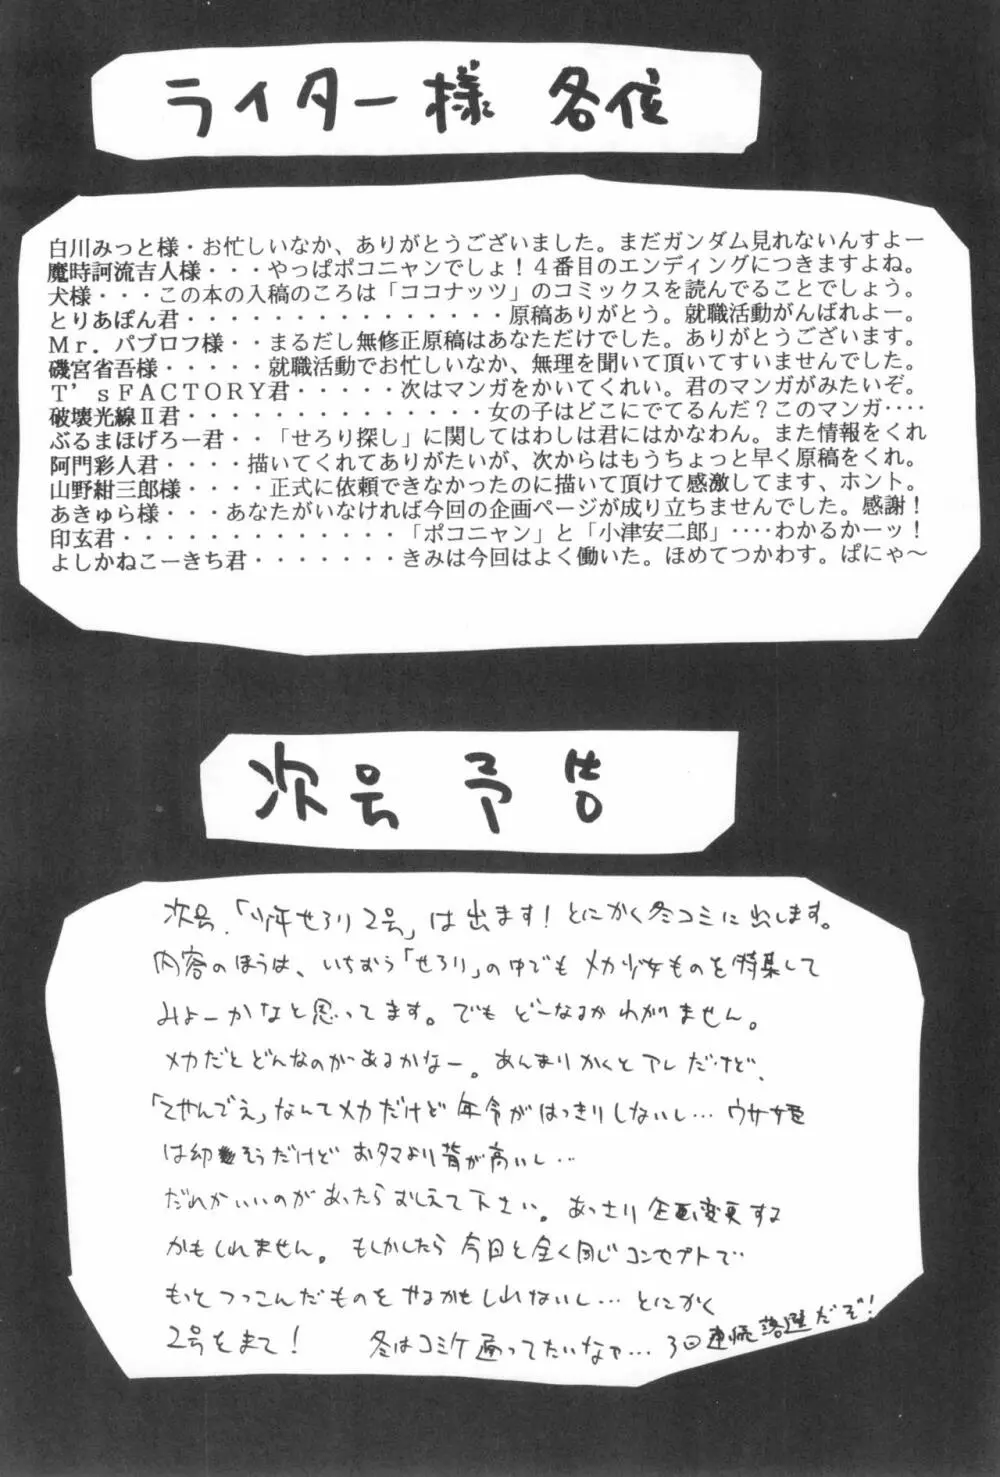 ライター様 各位
白川みっと様・お忙しいなか、ありがとうございました。まだガンダム見れないんすよー
魔時訶流吉人様・・・やっぱポコニャンでしょ！４番目のエンディングにつきますよね。
犬様・・・この本の入稿のころは「ココナッツ」のコミックスを読んでることでしょう。
とりあぽん君・・・・・・・・・・・・・・・原稿ありがとう。就職活動がんばれよー。
Ｍｒ．パブロフ様・・まるだし無修正原稿はあなただけでした。ありがとうございます。
磯宮省吾様・・・・・就職活動でお忙しいなか、無理を聞いて頂いてすいませんでした。
Ｔ’ｓＦＡＣＴＯＲＹ君・・・・・次はマンガをかいてくれい。君のマンガがみたいぞ。
破壊光線Ⅱ君・・・・・・・・・・・・・・女の子はどこにでてるんだ？このマンガ‥‥
ぶるまほげろー君・・「せろり探し」に関してはわしは君にはかなわん。また情報をくれ
阿門彩人君・・・・描いてくれてありがたいが、次からはもうちょっと早く原稿をくれ。
山野紺三郎様・・・・正式に依頼できなかったのに描いて頂けて感激してます、ホント。
あきゅら様・・・あなたがいなければ今回の企画ページが成り立ちませんでした。感謝！
印玄君・・・・・・・・・・・・・「ポコニャン」と「小津安二郎」‥‥わかるかーッ！
よしかねこーきち君・・・・・・・きみは今回はよく働いた。ほめてつかわす。ぱにゃ〜
次号 予告
次号.「少年せろり2号」は出ます！とにかく冬コミに出します。
内容のほうは、いちおう「せろり」の中でも メカ少女ものを特集して
みよーかなと思ってます。でも どーなるかわかりません。
メカだとどんなのがあるかなー。あんまりかくとアレだけど、
「てやんでえ」なんてメカだけど年令がはっきりしないし… ウサ姫
は幼そうだけど お夕マより背が高いし…
だれかいいのがあったらおしえて下さい。あっさり企画変更する
かもしれません。もしかしたら今回と全く同じコンセプトで
もっとつっこんだものをやるかもしれないし… とにかく
2号をまて！ 冬はコミケ通ってたいなァ… 3回連続落選だぞ！